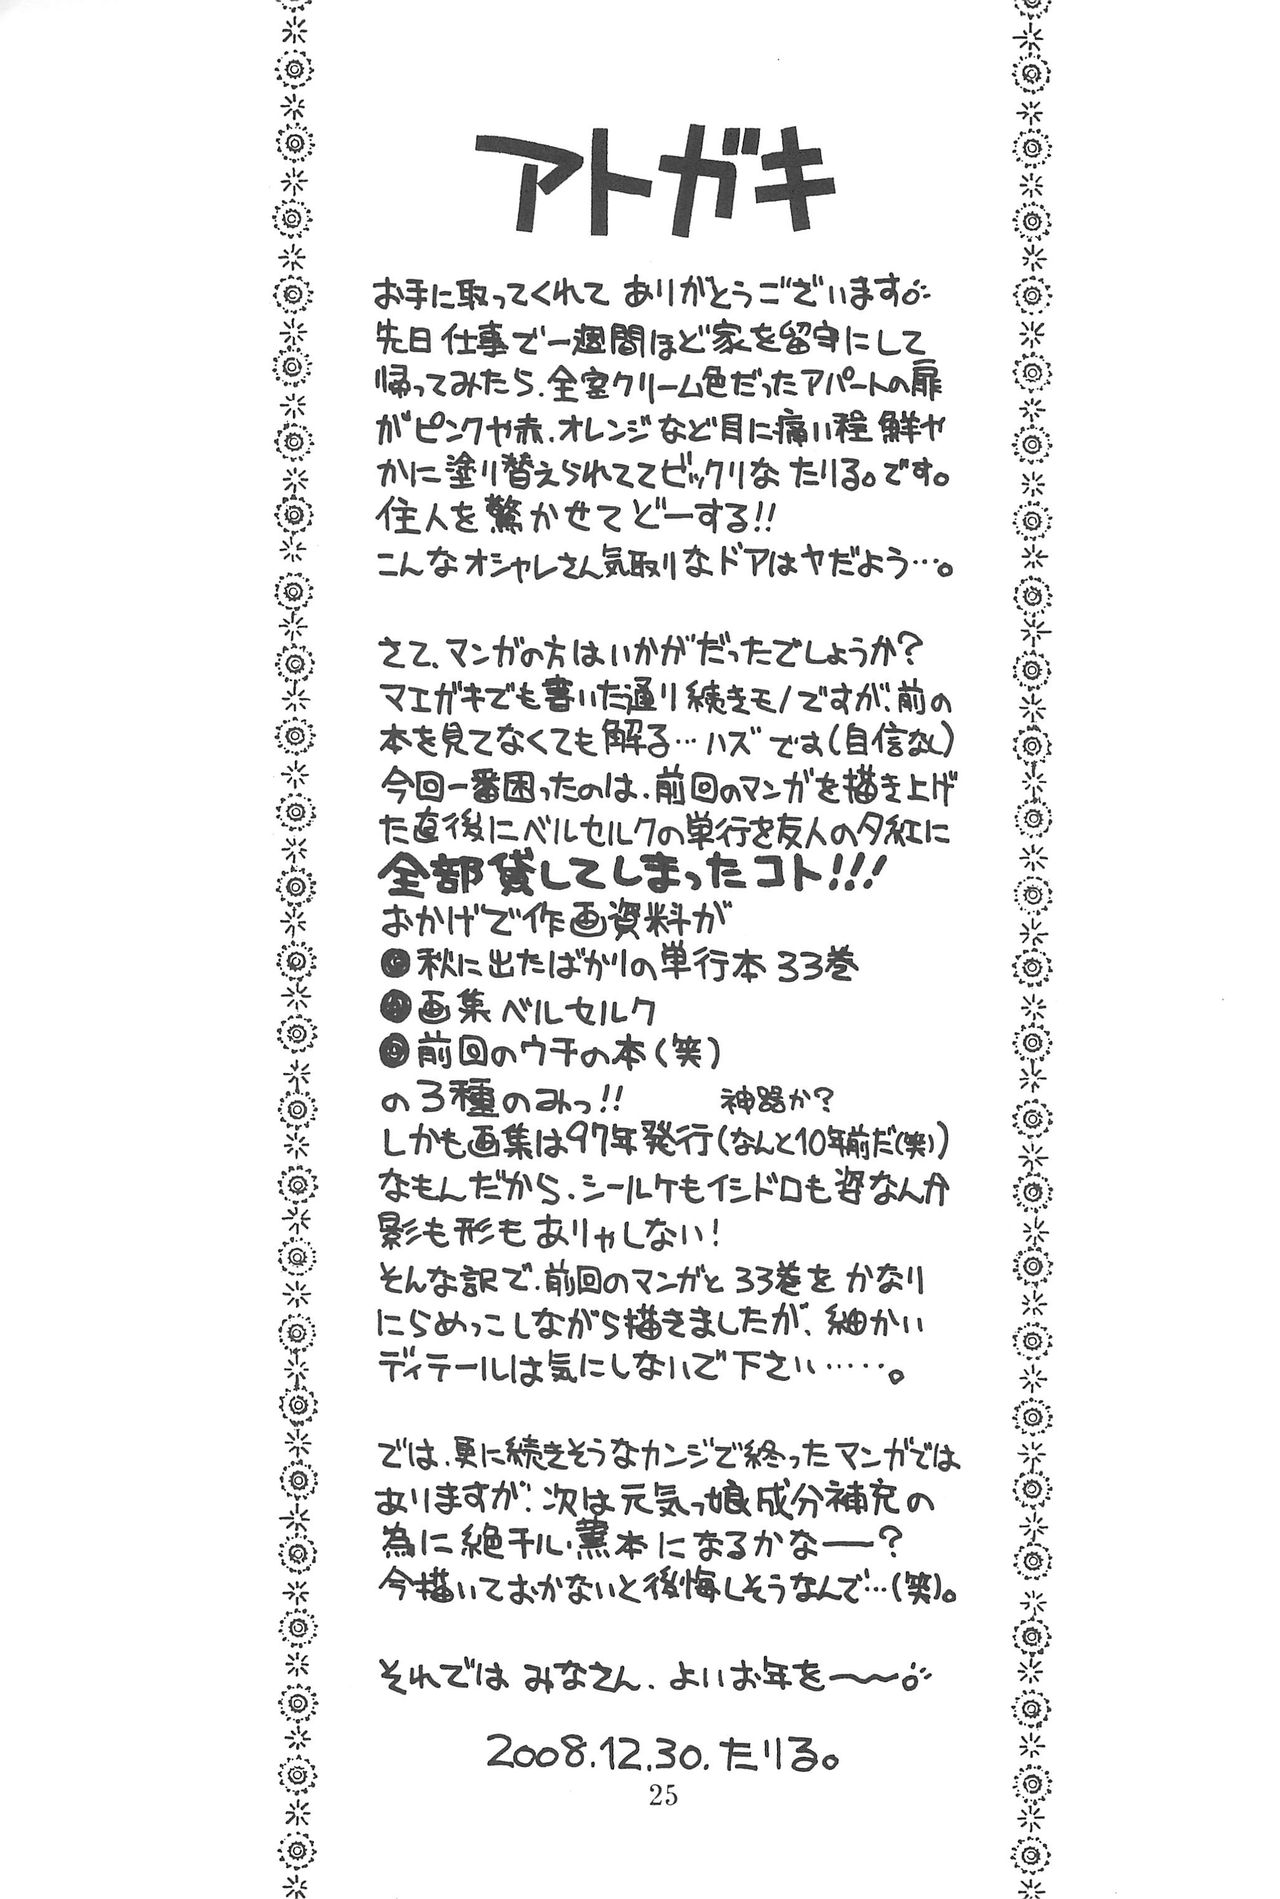 アトガキ
お手に取ってくれて ありがとうございます。
先日仕事で一週間ほど家を留守にして
帰ってみたら、全室クリーム色だったアパートの扉
がピンクや赤、オレンジなど目に痛い程鮮や
かに塗り替えられててビックリな たりる。です。
住人を驚かせてどーする!!
こんなオシャレさん気取りなドアはヤだよう…。
さて、マンガの方はいかがだったでしょうか?
マエガキでも書いた通り続きモノですが、前の
本を見てなくても解る…ハズです(自信なし)
今回一番困ったのは、前回のマンガを描き上げ
た直後にベルセルクの単行を友人の夕紅に
全部貸してしまったコト!!!
おかげで作画資料が
●秋に出たばかりの単行本 33巻
●画集 ベルセルク
●前回のウチの本(笑)
の3種のみっ!! 神器か?
しかも画集は97年発行(なんと10年前だ(笑))
なもんだから、シールケもイシドロも姿なんか
影も形もありゃしない!
そんな訳で、前回のマンガと 33巻を かなり
にらめっこしながら描きましたが、細かい
ディテールは気にしないで下さい……。
では、更に続きそうなカンジで終ったマンガでは
ありますが、次は元気っ娘成分補充の
為に絶チル・薫本になるかなー?
今描いておかないと後悔しそうなんで…(笑)。
それでは みなさん、よいお年を〜〜。
2008.12.30.たりる。
25